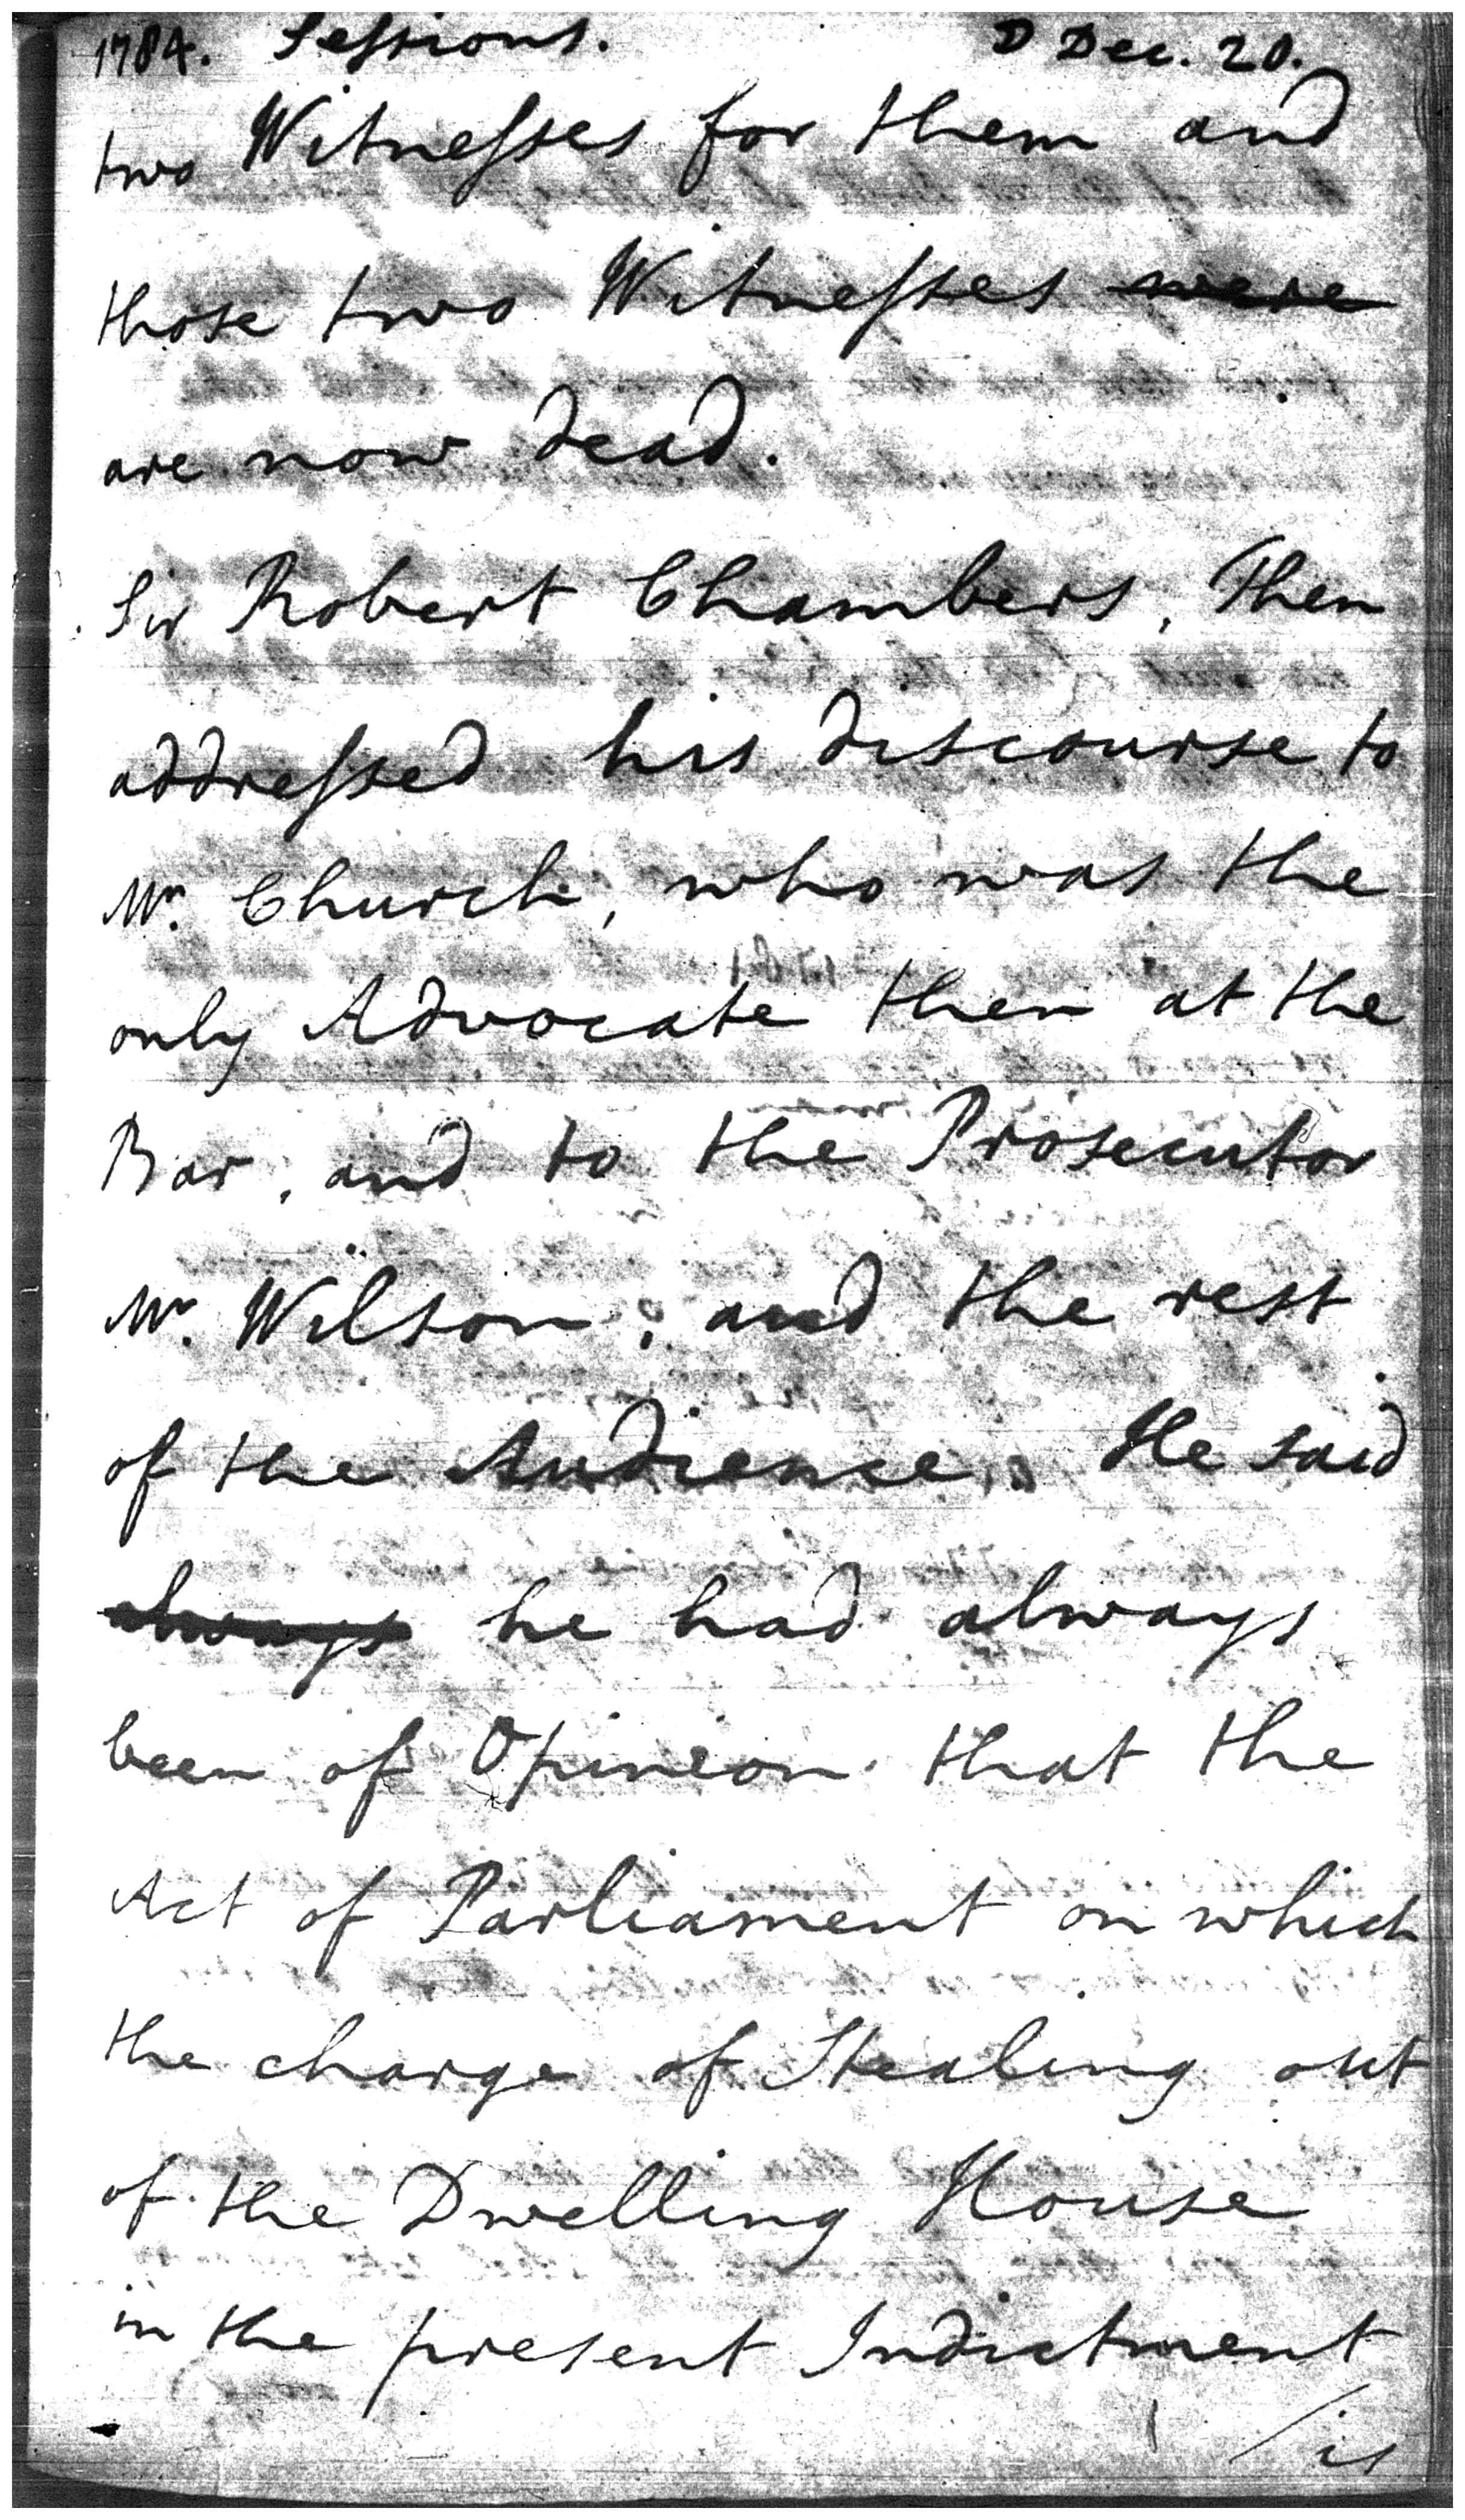 1784. Sessions. D Dec. 20.
two Witnesses for them and
those two Witnesses were
are now dead.
Sir Robert Chambers, then
addressed his discourse to
Mr. Church, who was the
only Advocate then at the
Bar, and to the Prosecutor
Mr. Wilson, and the rest
of the Audience. He said
always he had always
been of Opinion that the
Act of Parliament on which
the charge of Stealing out
of the Dwelling House
in the present Indictment
/is